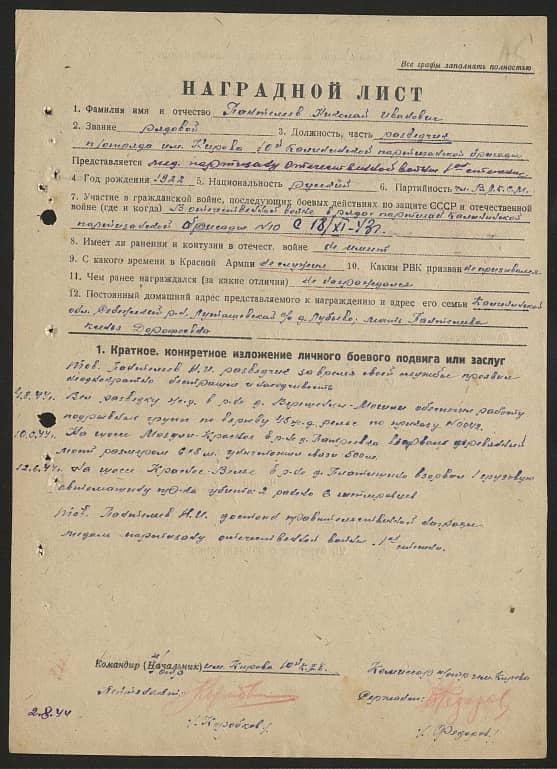 Все графы заполнять полностью
НАГРАДНОЙ ЛИСТ
1. Фамилия имя и отчество Пантелеев Николай Иванович
2. Звание рядовой 3. Должность, часть разведчик
отряда им. Кирова 10й Калининской партизанской бригады
Представляется мед. партизану отечественной войны 1ой степени
4. Год рождения 1922 5. Национальность русский 6. Партийность чл. ВЛКСМ.
7. Участие в гражданской войне, последующих боевых действиях по защите СССР и отечественной
войне (где и когда) В отечественной войне в рядах партизан Калининской
партизанской бригады №10 с 18/XI-43г.
8. Имеет ли ранения и контузии в отечест. войне не имеет
9. С какого времени в Красной Армии не служил 10. Каким РВК призван не призывался
11. Чем ранее награждался (за какие отличия) не награждался
12. Постоянный домашний адрес представляемого к награждению и адрес его семьи Калининская
обл. р-н, с/с д. мать Пантелеева
1. Краткое, конкретное изложение личного боевого подвига или заслуг
Тов. Пантелеев Н.И. разведчик за время своей службы проявил
неоднократно
Вел разведку ж.д. в р-не д. обеспечил работу
подрывных групп по взрыву рельс по приказу
10.6.44г. На шоссе Красное в р-не д. взорвал деревянный
мост размером 6×8 м. уничтожил связи 500м.
12.6.44г. На шоссе Красное в р-не д. взорвал 1 грузовую
автомашину пр-ка убито 2 ранено 6 гитлеровцев
Тов. Пантелеев Н.И. достоин правительственной награды
медали партизану отечественной войны 1ой степени.
Командир (Начальник) им. Кирова 10й К.П.Б.
Комиссар отряда им. Кирова
/Коробков/
/Федоров/
2.8.44